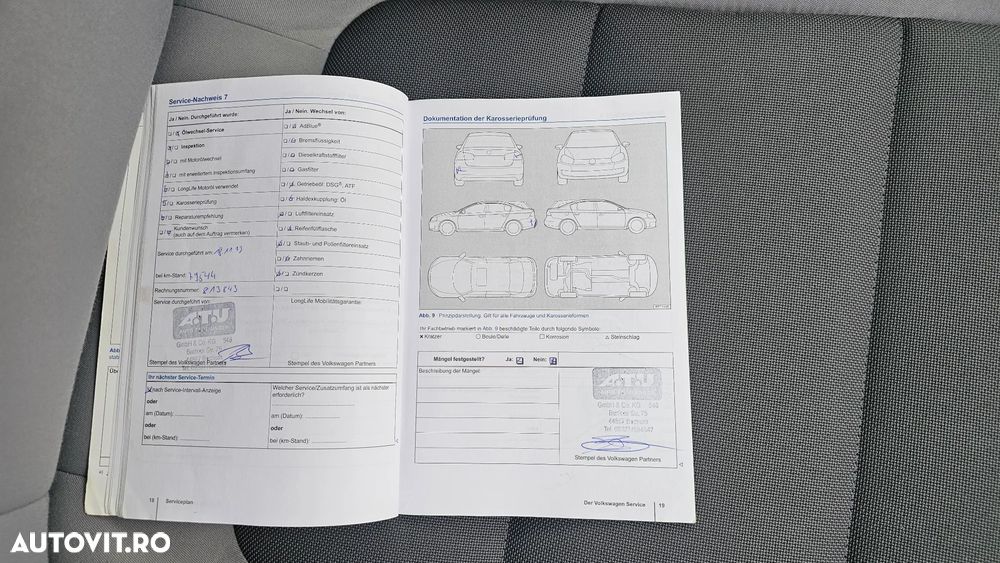 Service-Nachweis 7
Ja / Nein. Durchgeführt wurde:
Ja / Nein. Wechsel von:
Ölwechsel-Service
AdBlue®
Inspektion
Bremsflüssigkeit
mit Motorölwechsel
Dieselkraftstofffilter
mit erweitertem Inspektionsumfang
Gasfilter
LongLife Motoröl verwendet
Getriebeöl: DSG®, ATF
Karosserieprüfung
Haldexkupplung: Öl
Reparaturempfehlung
Luftfiltereinsatz
Kundenwunsch
(auch auf dem Auftrag vermerken)
Reifenfüllflasche
Staub- und Pollenfiltereinsatz
Service durchgeführt am:
Zahnriemen
bei km-Stand: 79544
Zündkerzen
Rechnungsnummer: 813843
Service durchgeführt von:
LongLife Mobilitätsgarantie:
A.T.U
GmbH & Co. KG 548
Stempel des Volkswagen Partners
Stempel des Volkswagen Partners
Ihr nächster Service-Termin
nach Service-Intervall-Anzeige
Welcher Service/Zusatzumfang ist als nächster
erforderlich?
oder
am (Datum):
am (Datum):
oder
oder
bei (km-Stand):
bei (km-Stand):
18
Serviceplan
Dokumentation der Karosserieprüfung
Abb. 9 Prinzipdarstellung. Gilt für alle Fahrzeuge und Karosserieformen
Ihr Fachbetrieb markiert in Abb. 9 beschädigte Teile durch folgende Symbole:
× Kratzer
○ Beule/Delle
□ Korrosion
△ Steinschlag
Mängel festgestellt? Ja: Nein:
Beschreibung der Mängel:
A.T.U
GmbH & Co. KG 548
Stempel des Volkswagen Partners
Der Volkswagen Service
19
AUTOVIT.RO